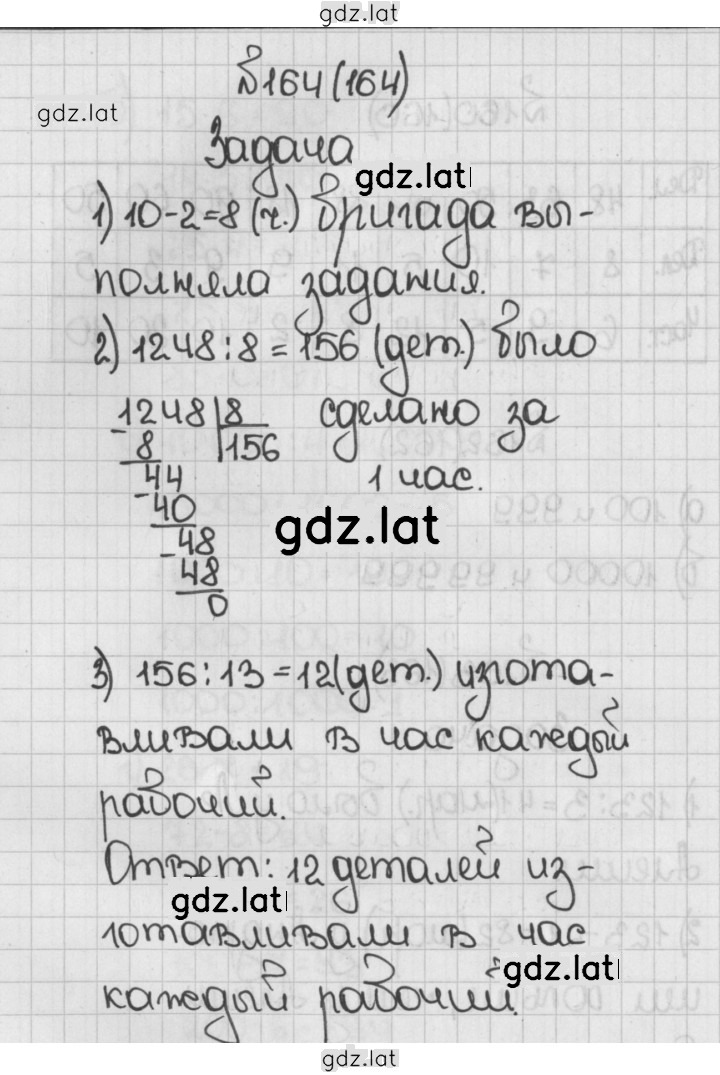 gdz.lat
№164(164)
gdz.lat
Задача
gdz.lat
1) 10-2=8 (ч.) бригада вы-
полняла задания.
2) 1248:8=156 (дет.) было
1248|8 сделано за
-8 |156
44 1 час.
-40
gdz.lat
-48
48
0
3) 156:13=12(дет.) изгота-
вливали в час каждый
рабочий.
Ответ: 12 деталей из-
gdz.lat
готавливали в час
gdz.lat
каждый рабочий.
gdz.lat